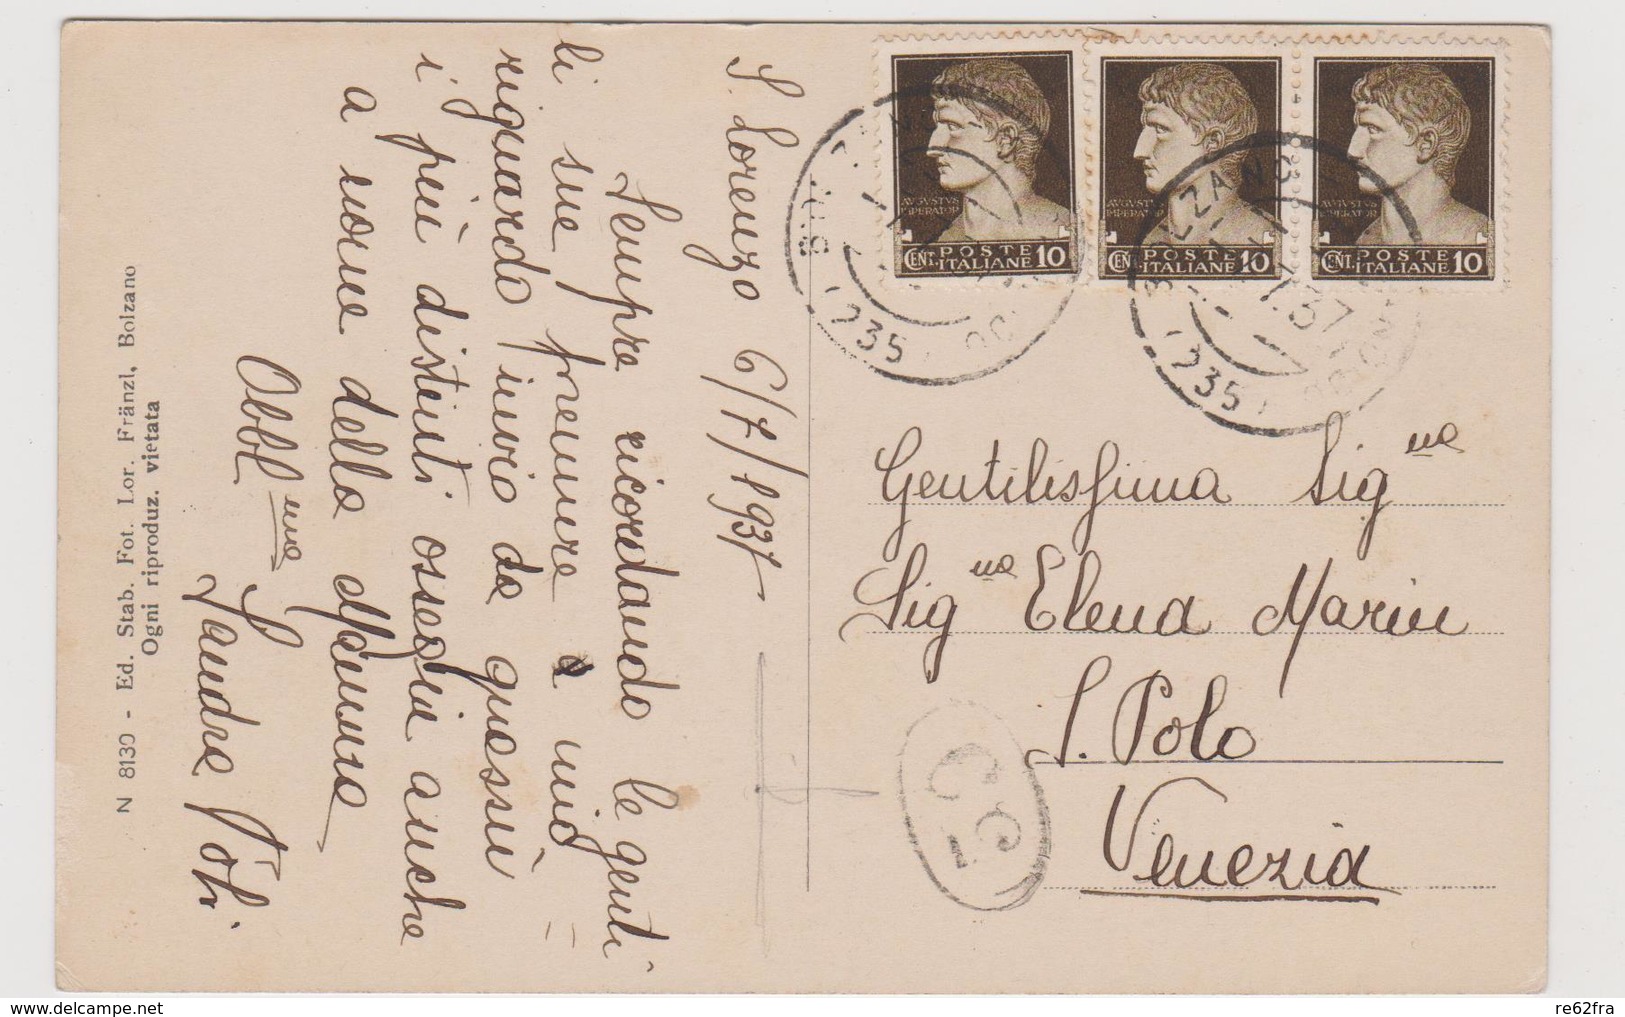 S. Lorenzo 6/7/1937
Sempre ricordando le genti
li sue premure a mio
riguardo invio da quassù
i più distinti ossequi anche
a nome della Mamma
Obbl^ma
Sandra Pòli
N 8130 - Ed. Stab. Fot. Lor. Fränzl, Bolzano
Ogni riproduz. vietata
AVGVSTVS
IMPERATOR
CENT. POSTE ITALIANE 10
AVGVSTVS
IMPERATOR
CENT. POSTE ITALIANE 10
CENT. POSTE ITALIANE 10
BOLZANO
235
235
Gentilissima Sig^na
Sig^na Elena Marin
S. Polo
Venezia
delcampe.net
re62fra